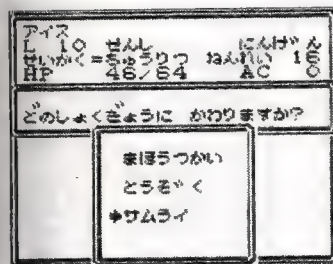 アイス
L 10 せんし にんげん
せいかく=ちゅうりつ ねんれい 16
HP 48/64 AC 0
どのしょくぎょうに かわりますか?
まほうつかい
とうぞく
サムライ